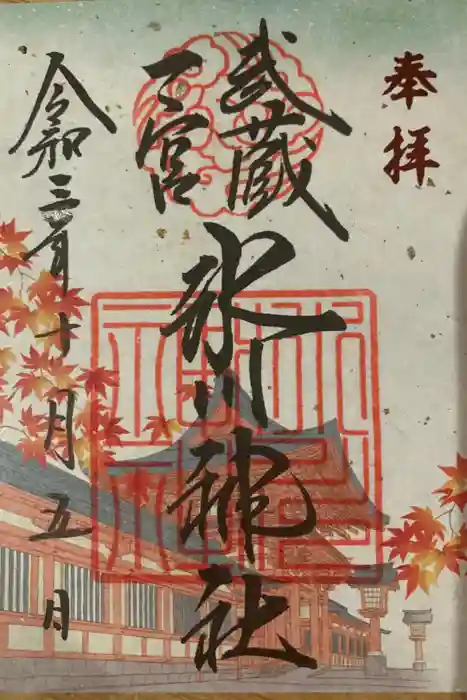 奉拝
武蔵
一宮
氷川神社
令和三年十月五日